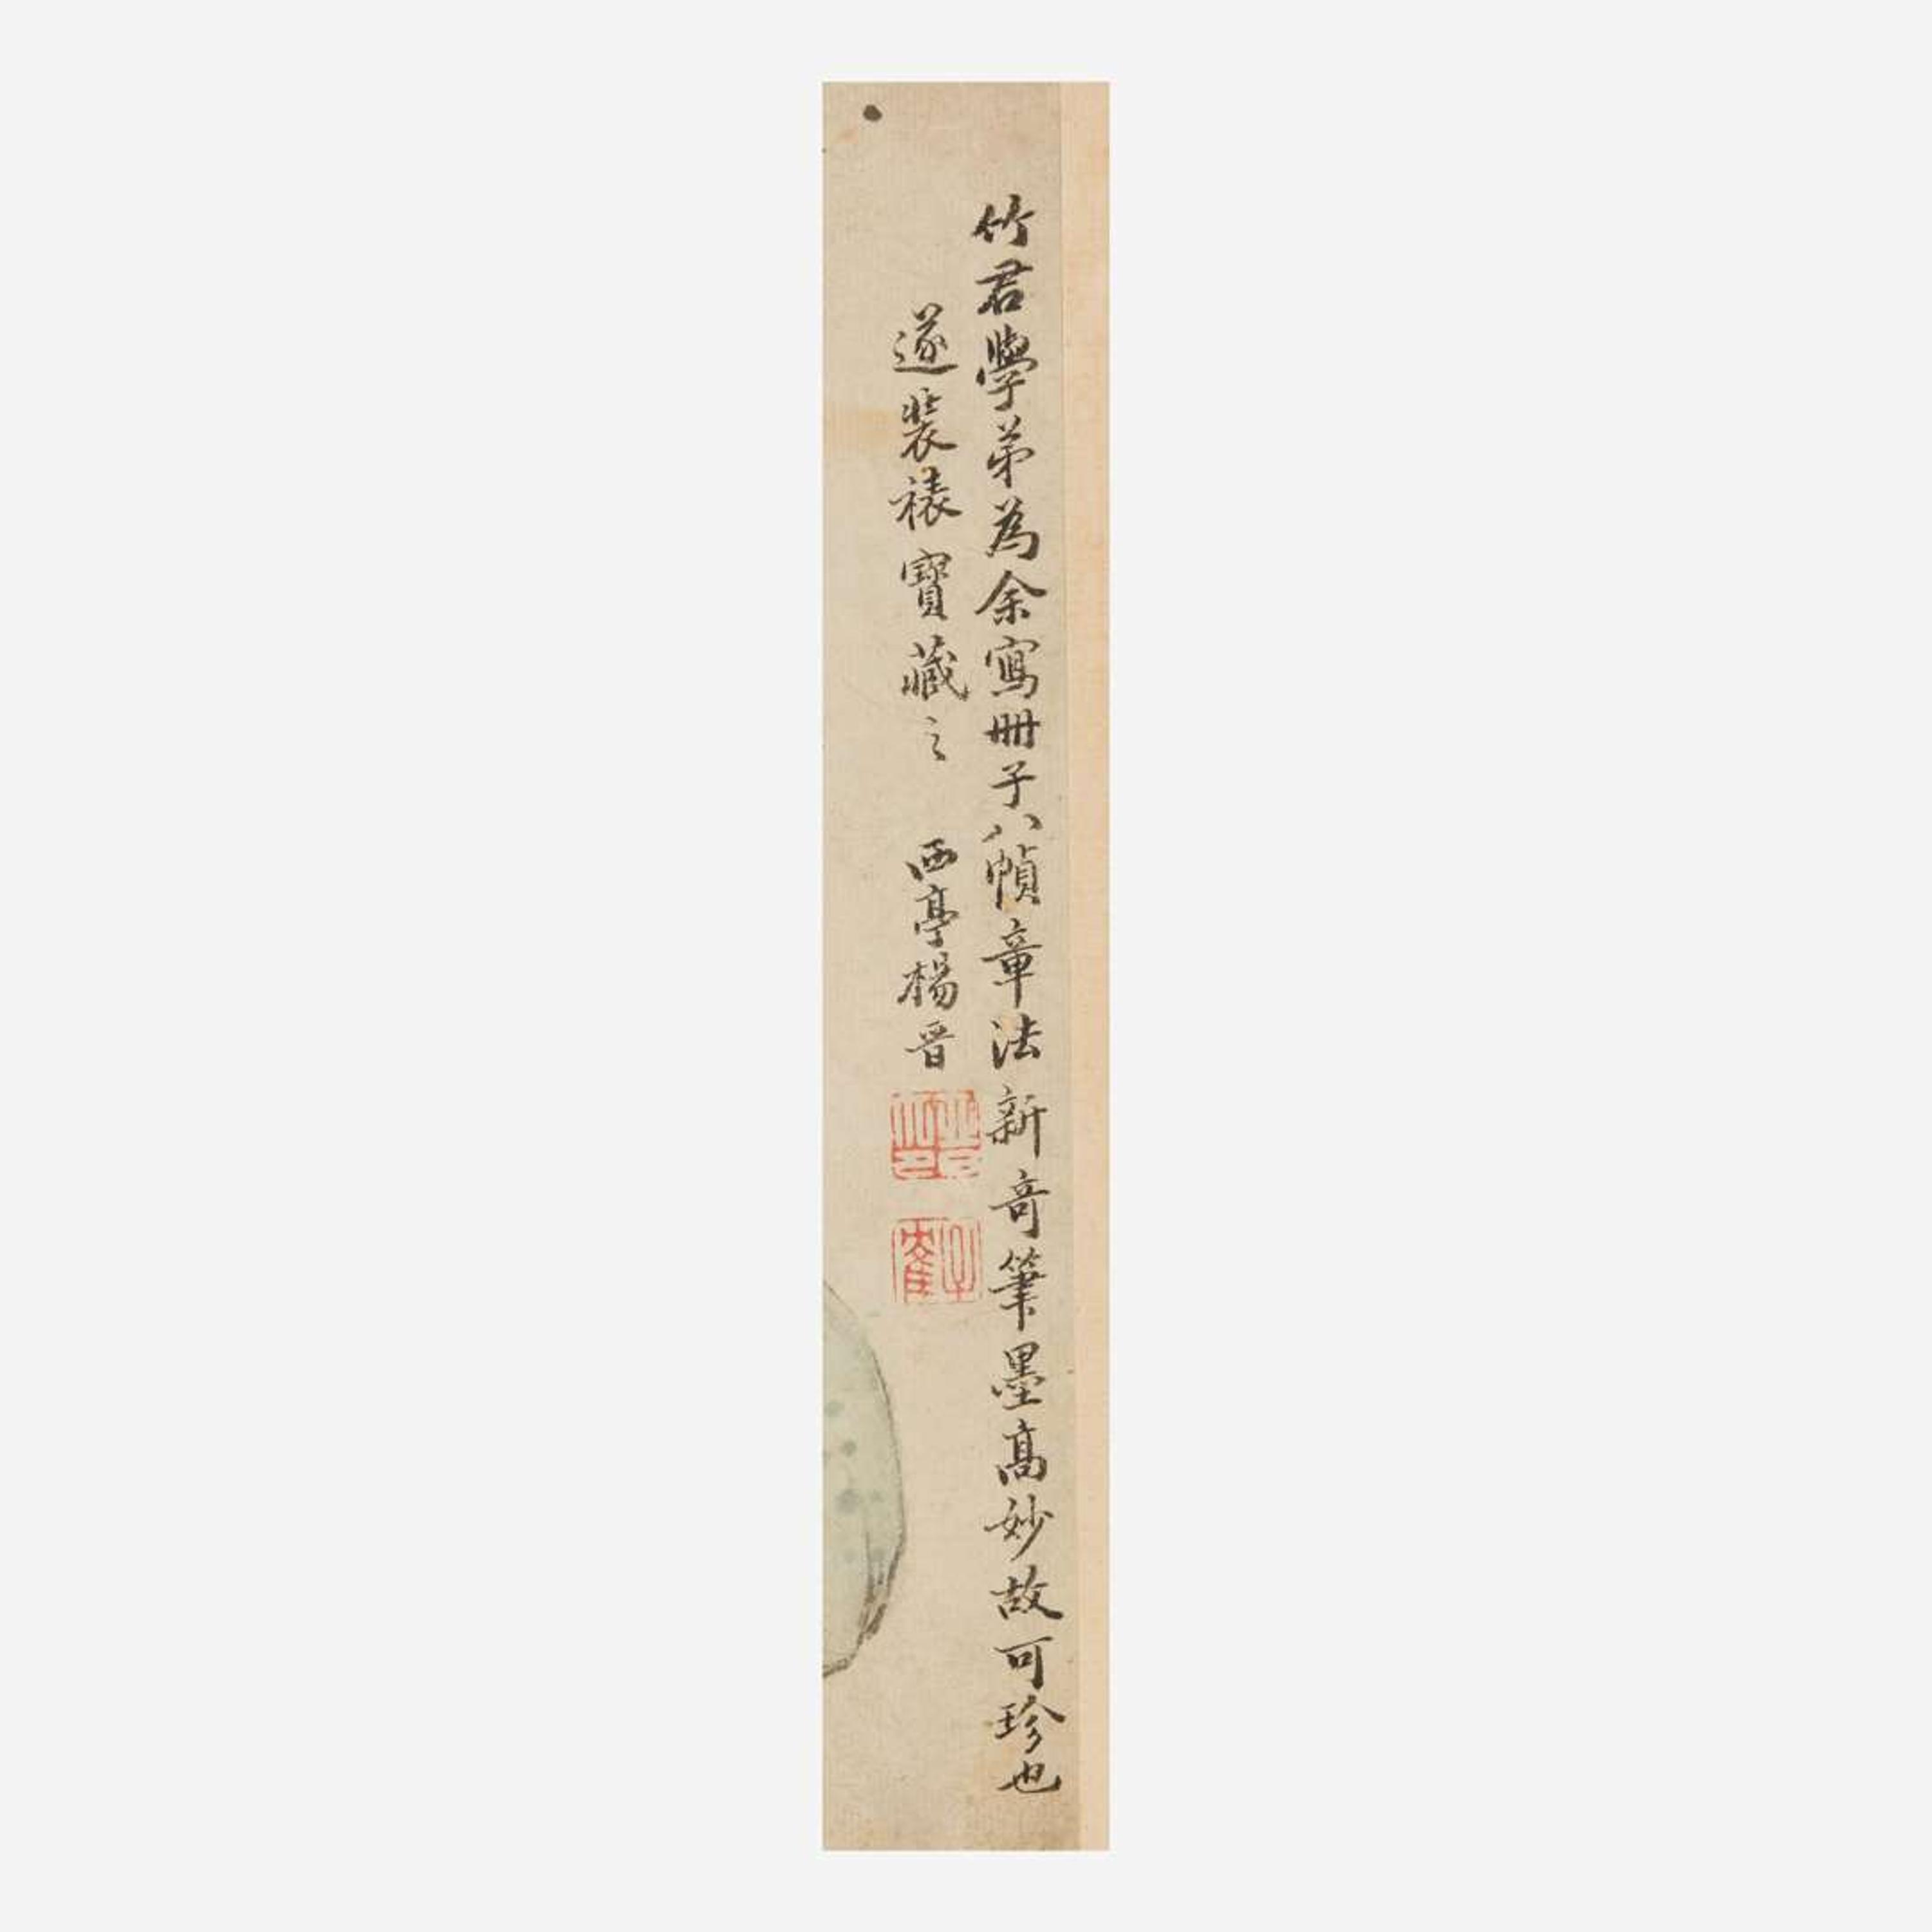 竹君學弟為余寫冊子八幀章法新奇筆墨高妙故可珍也
遂裝裱寶藏之 西亭楊晉